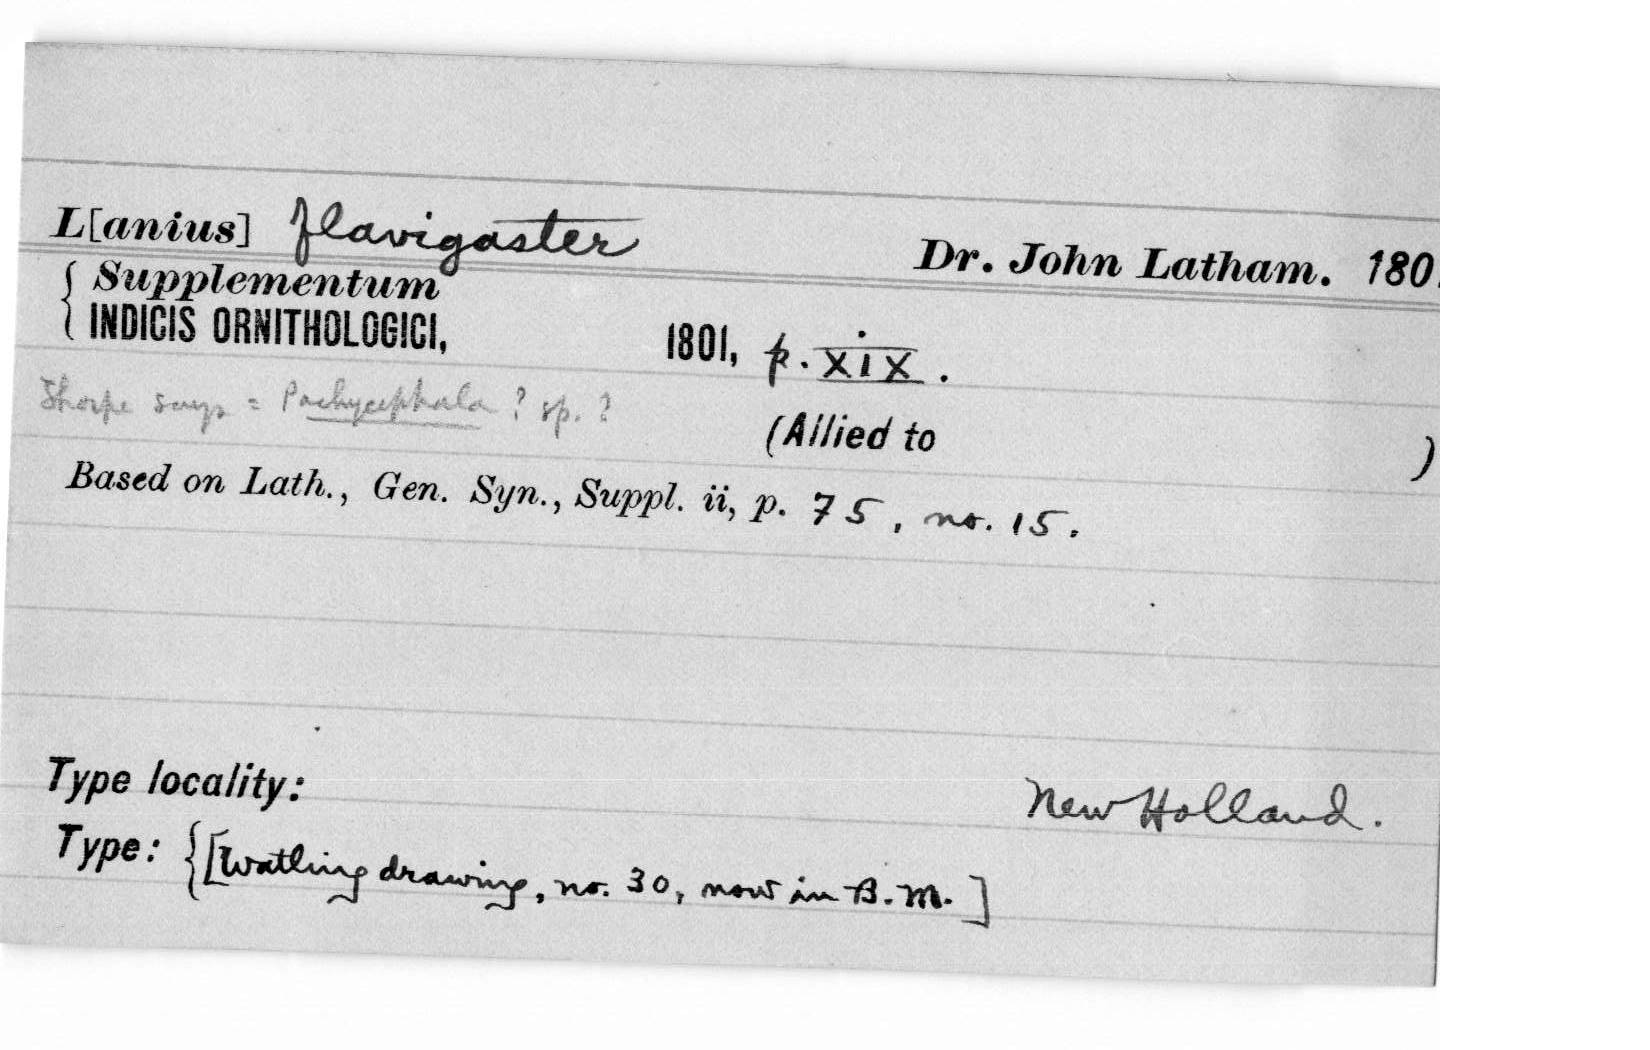 L[anius] flavigaster Dr. John Latham. 180
{ Supplementum
INDICIS ORNITHOLOGICI, 1801, p. xix.
Sharpe says = Pachycephala ? sp. ?
(Allied to )
Based on Lath., Gen. Syn., Suppl. ii, p. 75, no. 15.
Type locality: New Holland.
Type: {[Watling drawing, no. 30, now in B.M.]